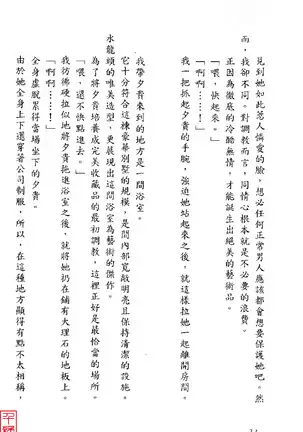 見到她如此惹人憐愛的臉，想必任何正常男人應該都會想要保護她吧。然
而，我卻不同。對調教而言，同情心根本就是不必要的浪費。
正因為徹底的冷酷無情，才能誕生出絕美的藝術品。
「喂，快起來。」
「啊啊……！」
我一把抓起夕貴的手腕，強迫她站起來之後，就這樣拉她一起離開房間。
我帶夕貴來到的地方是一間浴室。
它十分符合這棟豪華別墅的規模，是間內部寬敞明亮且保持清潔的設施。
水龍頭的唯美造型，更展現出這間浴室為藝術的傑作。
為了將夕貴培養成完美收藏品的最初調教，這裡正好是最恰當的場所。
「喂，還不快點進去。」
「啊啊……！」
我彷彿硬拉似地將夕貴拖進浴室之後，就將她扔在鋪有大理石的地板上。
全身虛脫累得當場坐下的夕貴。
由於她全身上下還穿著公司制服，所以，在這種地方顯得有點不太相稱，